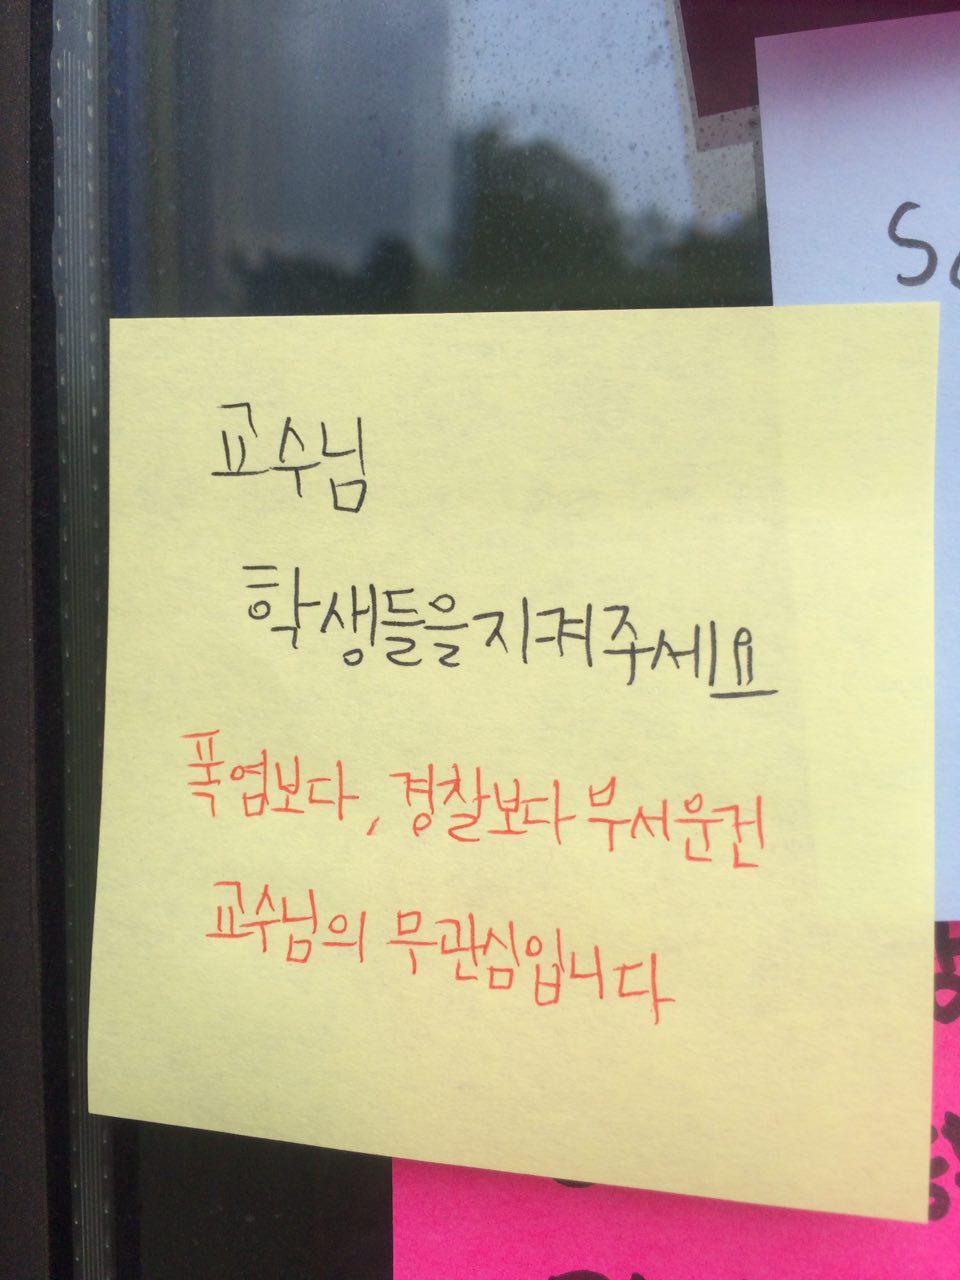 교수님
학생들을 지켜주세요
폭염보다, 경찰보다 부서운건
교수님의 무관심입니다